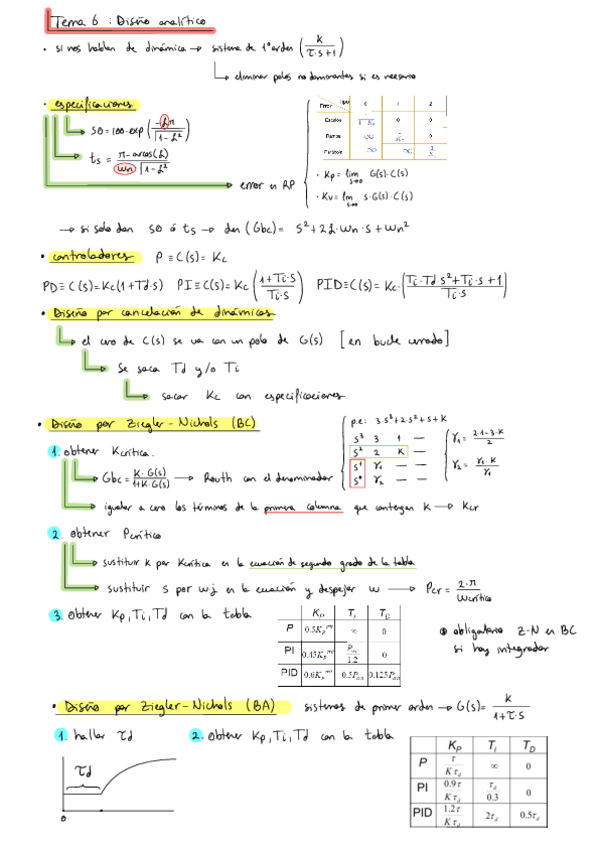 Tema 6 : Diseño analítico
· si nos hablan de dinámica → sistema de 1º orden ( K / τ·s+1 )
eliminar polos no dominantes si es necesario
· especificaciones
SO = 100·exp( -ξπ / √1-ξ² )
ts = π-arcos(ξ) / wn √1-ξ²
→ error en RP
Error Tipo 0 1 2
Escalón 0 0
Rampa ∞ 0
Parábola ∞ ∞
· Kp = lim s→0 G(s)·C(s)
· Kv = lim s→0 s·G(s)·C(s)
→ si solo dan SO ó ts → den (Gbc) = s²+2ξ·wn·s+wn²
· controladores P ≡ C(s) = Kc
PD ≡ C(s) = Kc(1+Td·s) PI ≡ C(s) = Kc ( 1+Ti·s / Ti·s ) PID ≡ C(s) = Kc· ( Ti·Td s²+Ti·s+1 / Ti·s )
· Diseño por cancelación de dinámicas
el cero de C(s) se va con un polo de G(s) [en bucle cerrado]
Se saca Td y/o Ti
sacar Kc con especificaciones
· Diseño por Ziegler-Nichols (BC)
1. obtener Kcrítica.
Gbc = K·G(s) / 1+K·G(s) → Routh con el denominador
p.e: 3·s³+2·s²+s+K
s³ 3 1 —
s² 2 K —
s¹ γ₁ — —
s⁰ γ₂ — —
γ₁ = 2·1-3·K / 2
γ₂ = γ₁·K / γ₁
igualar a cero los términos de la primera columna que contengan K → Kcr
2. obtener Pcrítico
sustituir K por Kcrítica en la ecuación de segundo grado de la tabla
sustituir s por wj en la ecuación y despejar w → Pcr = 2·π / wcrítica
3. obtener Kp, Ti, Td con la tabla
K_P T_i T_D
P 0.5K_p^cri ∞ 0
PI 0.45K_p^cri P_cri / 1.2 0
PID 0.6K_p^cri 0.5P_cri 0.125P_cri
obligatorio Z-N en BC
si hay integrador
· Diseño por Ziegler-Nichols (BA) sistemas de primer orden → G(s) = K / 1+τ·s
1. hallar τd 2. obtener Kp, Ti, Td con la tabla
τd
0
K_P T_i T_D
P τ / Kτ_d ∞ 0
PI 0.9τ / Kτ_d τ_d / 0.3 0
PID 1.2τ / Kτ_d 2τ_d 0.5τ_d